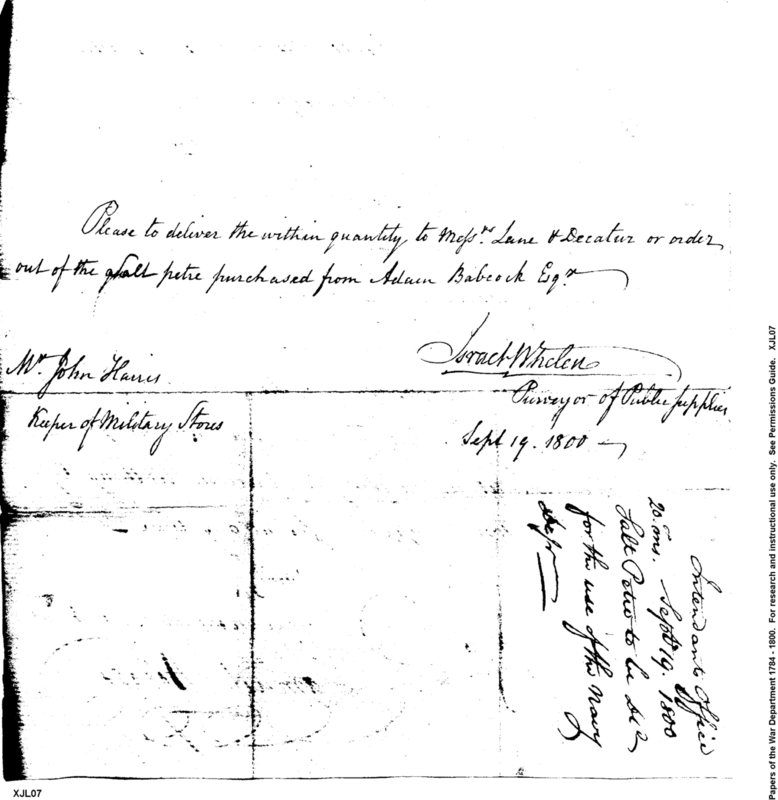 Please to deliver the within quantity to Messrs. Lane & Decatur or order
out of the Salt petre purchased from Adam Babcock Esqr
Israel Whelen
Mr. John Harris
Purveyor of Public Supplies
Keeper of Military Stores
Sept 19. 1800
Intendants Office
Sept 19. 1800
Salt Petre to be
for the use of the Navy
Dept
Papers of the War Department 1784 - 1800. For research and instructional use only. See Permissions Guide. XJL07
XJL07